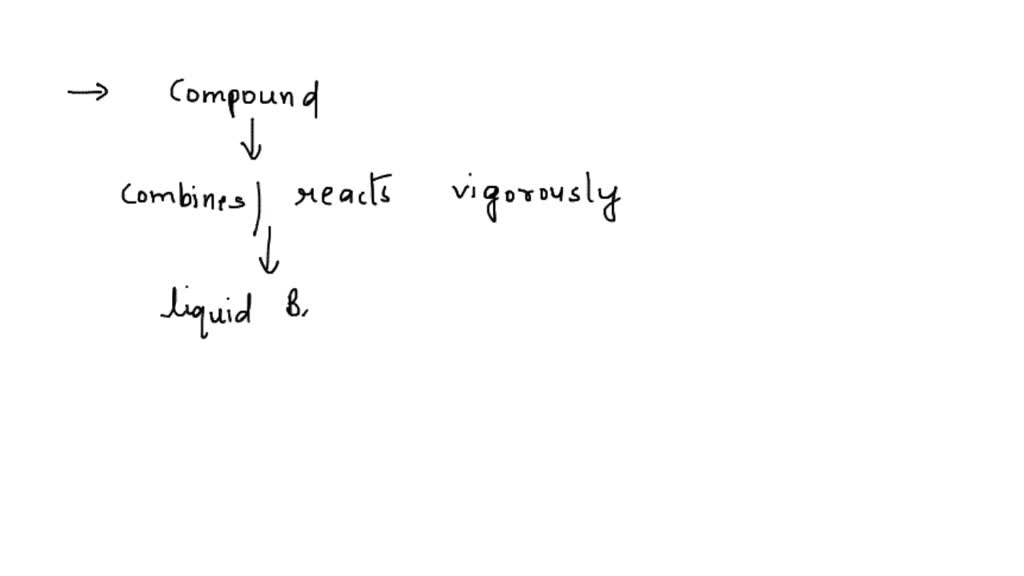 → Compound
↓
Combines/ reacts vigorously
↓
liquid B,